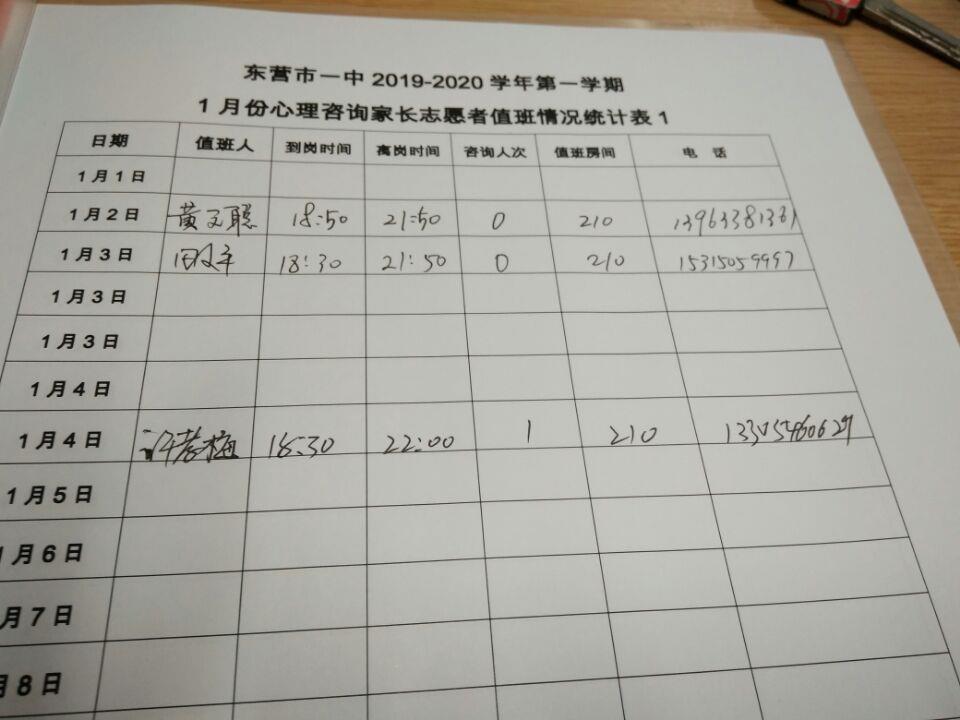 东营市一中 2019-2020 学年第一学期
1 月份心理咨询家长志愿者值班情况统计表 1
日期 值班人 到岗时间 离岗时间 咨询人次 值班房间 电 话
1 月 1 日
1 月 2 日 黄文聪 18:50 21:50 0 210
1 月 3 日 18:30 21:50 0 210 15315059997
1 月 3 日
1 月 3 日
1 月 4 日
1 月 4 日 许孝梅 18:30 22:00 1 210
1 月 5 日
1 月 6 日
月 7 日
月 8 日